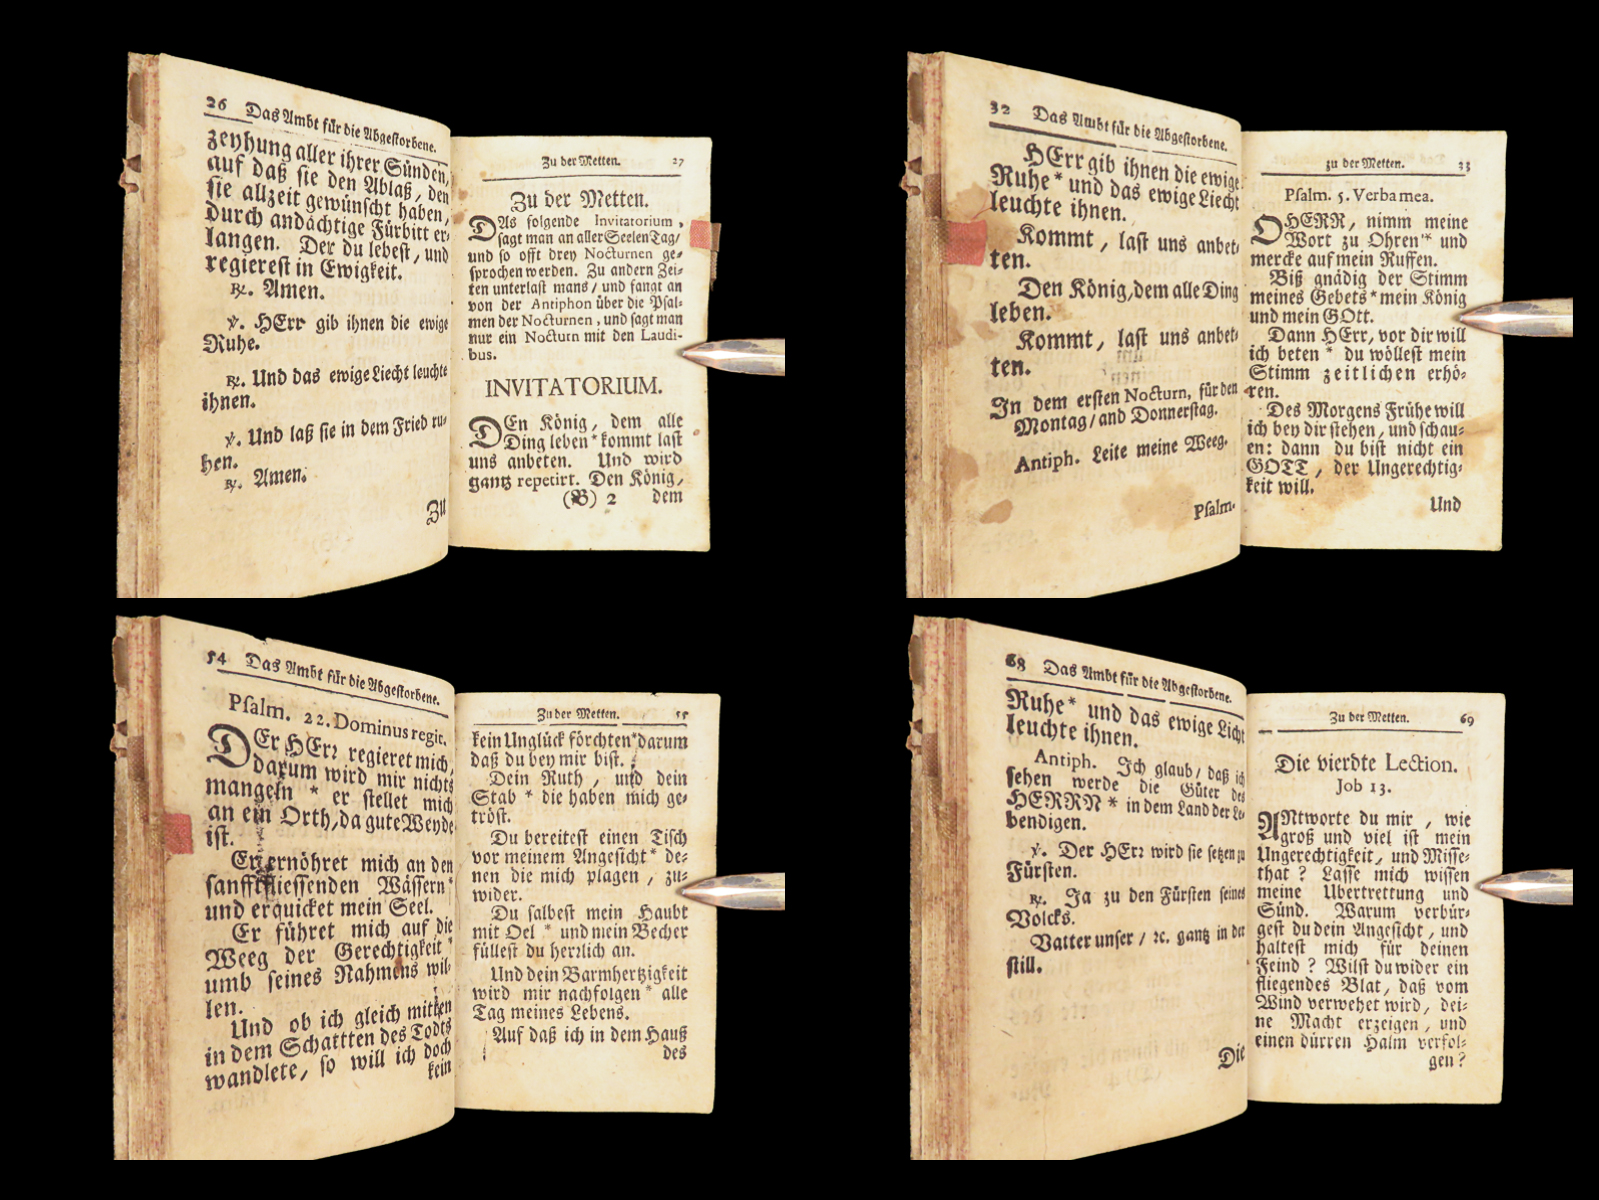 26 Das Ambt für die Abgestorbene.
zeyhung aller ihrer Sünden,
auf daß sie den Ablaß, den
sie allzeit gewünscht haben,
durch andächtige Fürbitt er-
langen. Der du lebest, und
regierest in Ewigkeit.
℟. Amen.
℣. HErr gib ihnen die ewige
Ruhe.
℟. Und das ewige Liecht leuchte
ihnen.
℣. Und laß sie in dem Fried ru-
hen.
℟. Amen.
Zu
Zu der Metten. 27
Zu der Metten.
DAs folgende Invitatorium,
sagt man an aller Seelen Tag/
und so offt drey Nocturnen ge-
sprochen werden. Zu andern Zei-
ten unterlast mans / und fangt an
von der Antiphon über die Psal-
men der Nocturnen, und sagt man
nur ein Nocturn mit den Laudi-
bus.
INVITATORIUM.
DEn König, dem alle
Ding leben * kommt last
uns anbeten. Und wird
gantz repetirt. Den König,
(B) 2 dem
32 Das Ambt für die Abgestorbene.
HErr gib ihnen die ewige
Ruhe * und das ewige Liecht
leuchte ihnen.
Kommt, last uns anbet-
ten.
Den König, dem alle Ding
leben.
Kommt, last uns anbet-
ten.
In dem ersten Nocturn, für den
Montag / and Donnerstag.
Antiph. Leite meine Weeg.
Psalm.
zu der Metten. 33
Psalm. 5. Verba mea.
OHERR, nimm meine
Wort zu Ohren * und
mercke auf mein Ruffen.
Biß gnädig der Stimm
meines Gebets * mein König
und mein GOtt.
Dann HErr, vor dir will
ich beten * du wöllest mein
Stimm zeitlichen erhö-
ren.
Des Morgens Frühe will
ich bey dir stehen, und schau-
en: dann du bist nicht ein
GOTT, der Ungerechtig-
keit will.
Und
54 Das Ambt für die Abgestorbene.
Psalm. 22. Dominus regit.
DEr HErr regieret mich,
darum wird mir nichts
mangeln * er stellet mich
an ein Orth, da gute Weyde
ist.
Er ernöhret mich an den
sanfftfliessenden Wässern *
und erquicket mein Seel.
Er führet mich auf die
Weeg der Gerechtigkeit *
umb seines Nahmens wil-
len.
Und ob ich gleich mitten
in dem Schattten des Todts
wandlete, so will ich doch
kein
Zu der Metten. 55
kein Unglück förchten * darum
daß du bey mir bist.
Dein Ruth, und dein
Stab * die haben mich ge-
tröst.
Du bereitest einen Tisch
vor meinem Angesicht * de-
nen die mich plagen, zu-
wider.
Du salbest mein Haubt
mit Oel * und mein Becher
füllest du herzlich an.
Und dein Barmhertzigkeit
wird mir nachfolgen * alle
Tag meines Lebens.
Auf daß ich in dem Hauß
des
68 Das Ambt für die Abgestorbene.
Ruhe * und das ewige Licht
leuchte ihnen.
Antiph. Ich glaub / daß ich
sehen werde die Güter des
HERRN * in dem Land der Le-
bendigen.
℣. Der HErr wird sie setzen zu
Fürsten.
℟. Ja zu den Fürsten seines
Volcks.
Vatter unser / ꝛc. gantz in der
still.
Die
Zu der Metten. 69
Die vierdte Lection.
Job 13.
ANtworte du mir, wie
groß und viel ist mein
Ungerechtigkeit, und Misse-
that? Lasse mich wissen
meine Ubertrettung und
Sünd. Warum verbür-
gest du dein Angesicht, und
haltest mich für deinen
Feind? Wilst du wider ein
fliegendes Blat, daß vom
Wind verwehet wird, dei-
ne Macht erzeigen, und
einen dürren Halm verfol-
gen?